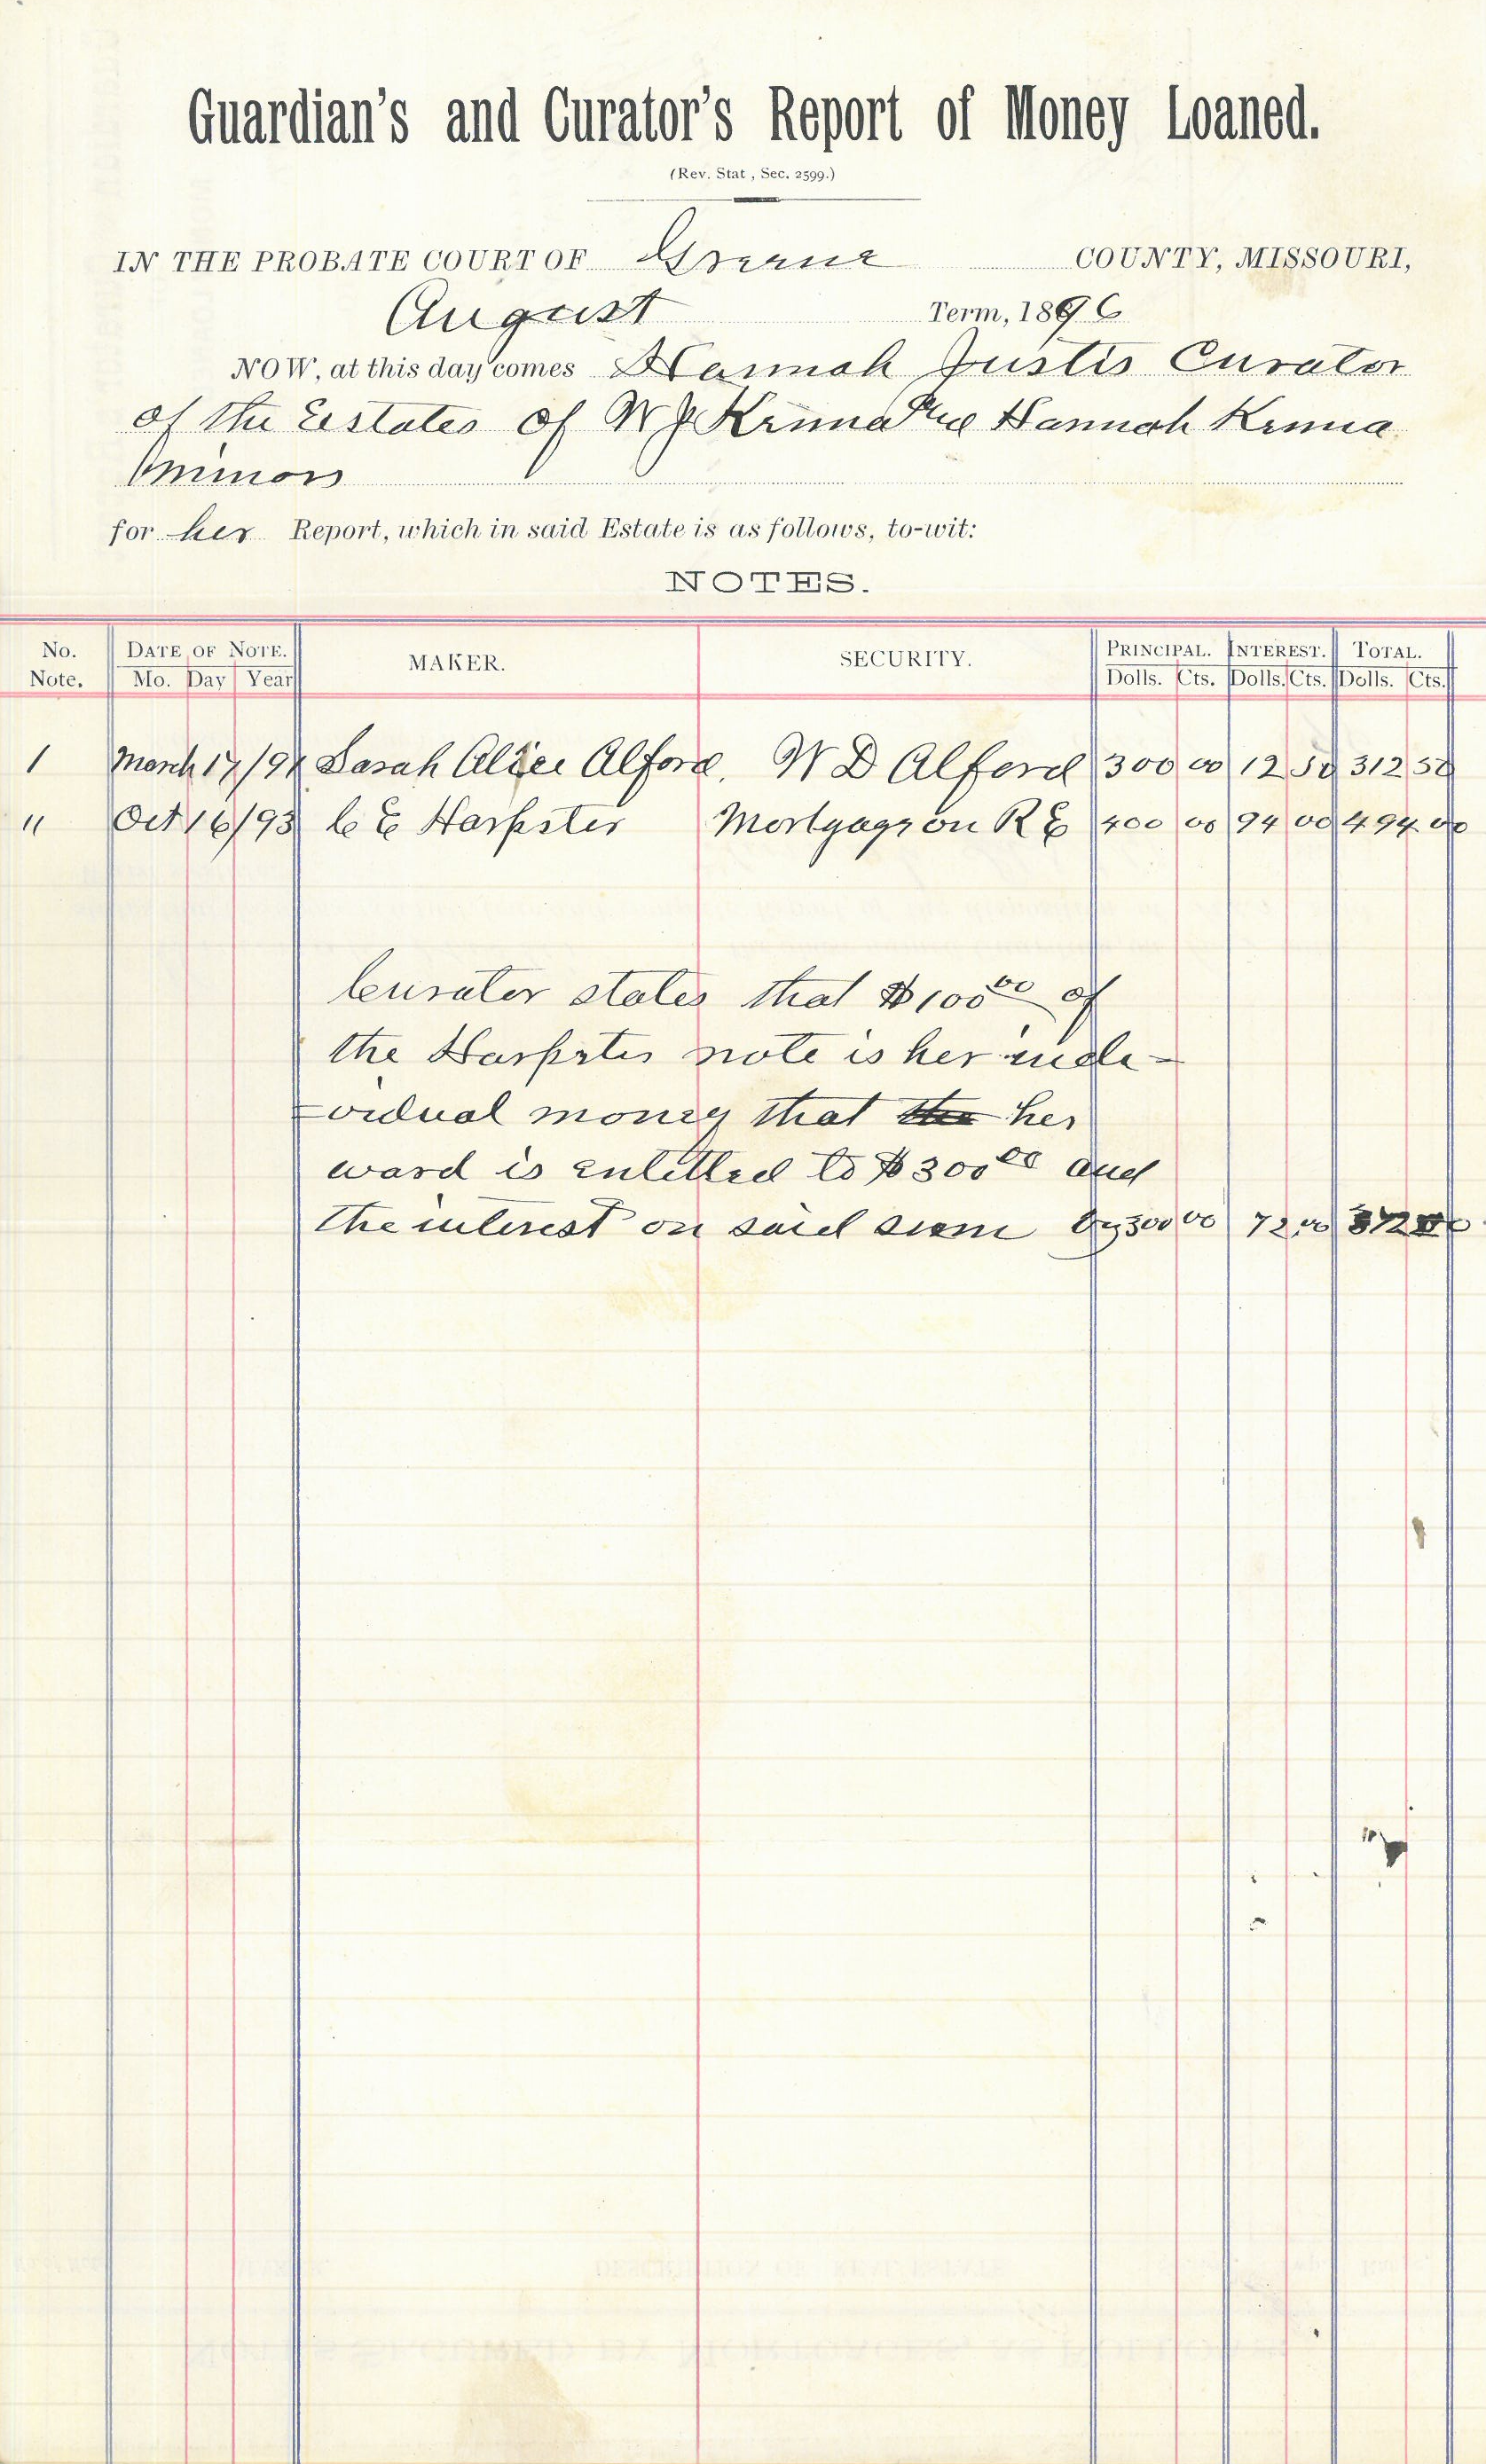 Guardian's and Curator's Report of Money Loaned.
(Rev. Stat , Sec. 2599.)
IN THE PROBATE COURT OF Greene COUNTY, MISSOURI,
August Term, 1896
NOW, at this day comes Hannah Justis Curator
of the Estates of W J Kenna and Hannah Kenna
minors
for her Report, which in said Estate is as follows, to-wit:
NOTES.
No. Note. DATE OF NOTE. Mo. Day Year MAKER. SECURITY. PRINCIPAL. Dolls. Cts. INTEREST. Dolls. Cts. TOTAL. Dolls. Cts.
1 March 17/94 Sarah Alice Alford. W D Alford 300 00 12 50 312 50
" Oct 16/93 C E Harpster Mortgage on R E 400 00 94 00 494 00
Curator states that $100 00 of
the Harpster note is her inde-
vidual money that the her
ward is entitled to $300 00 and
the interest on said sum 300 00 72 00 372 00